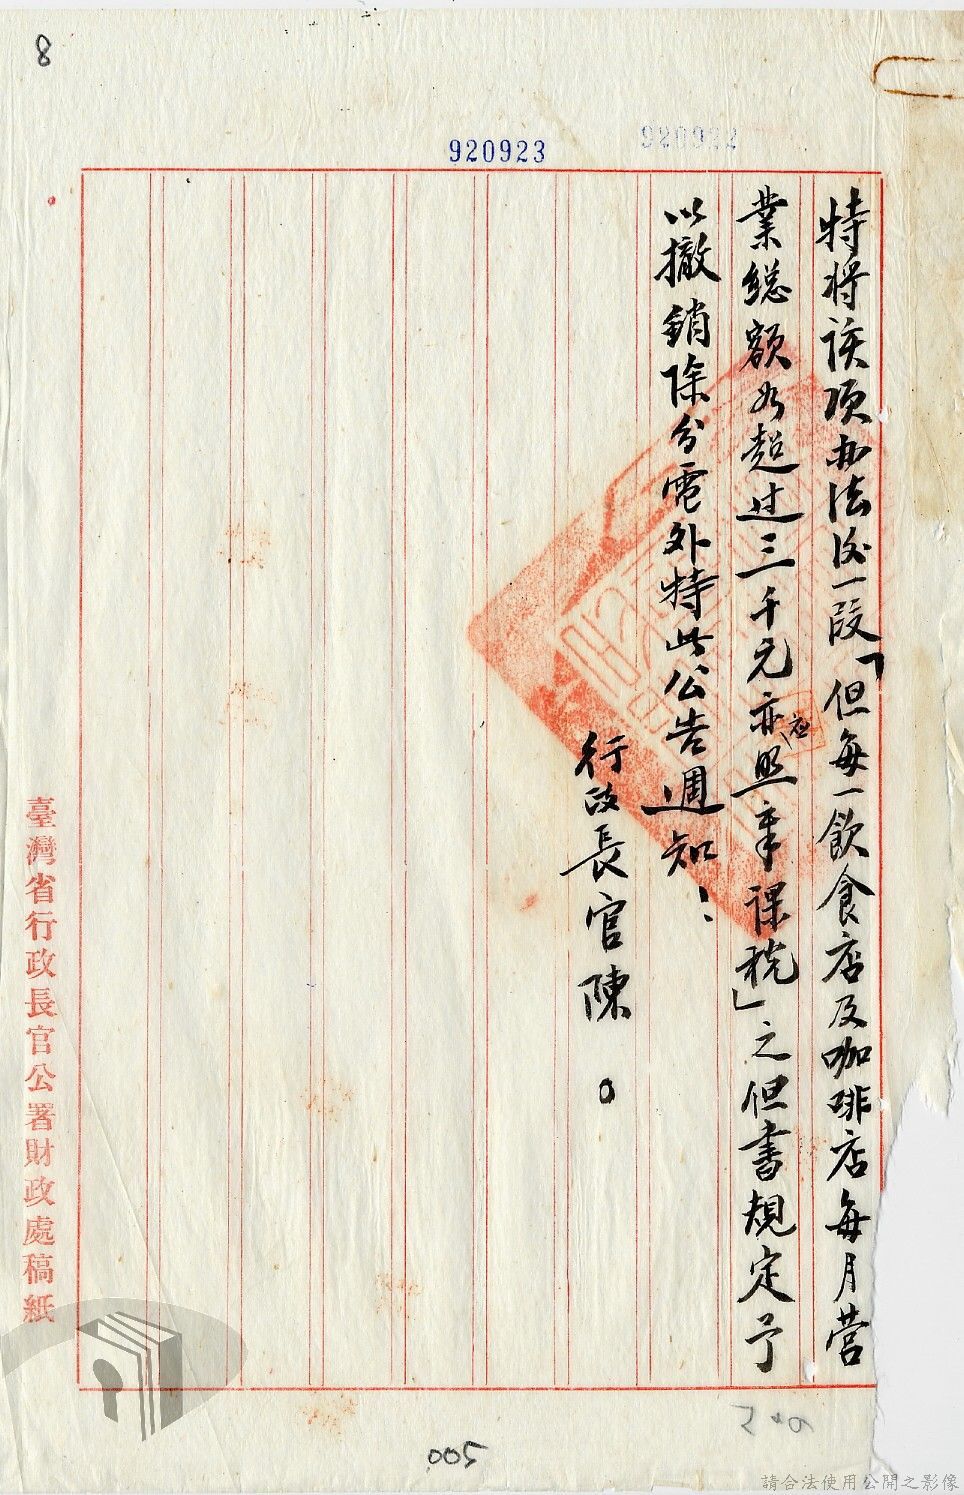 8
920922
920923
特将该项办法后一段「但每一飲食店及咖啡店每月営
業総額如超过三千元亦應照章课税」之但書規定予
以撤銷除分電外特此公告週知：
行政長官陳〇
臺灣省行政長官公署財政處稿紙
005
請合法使用公開之影像